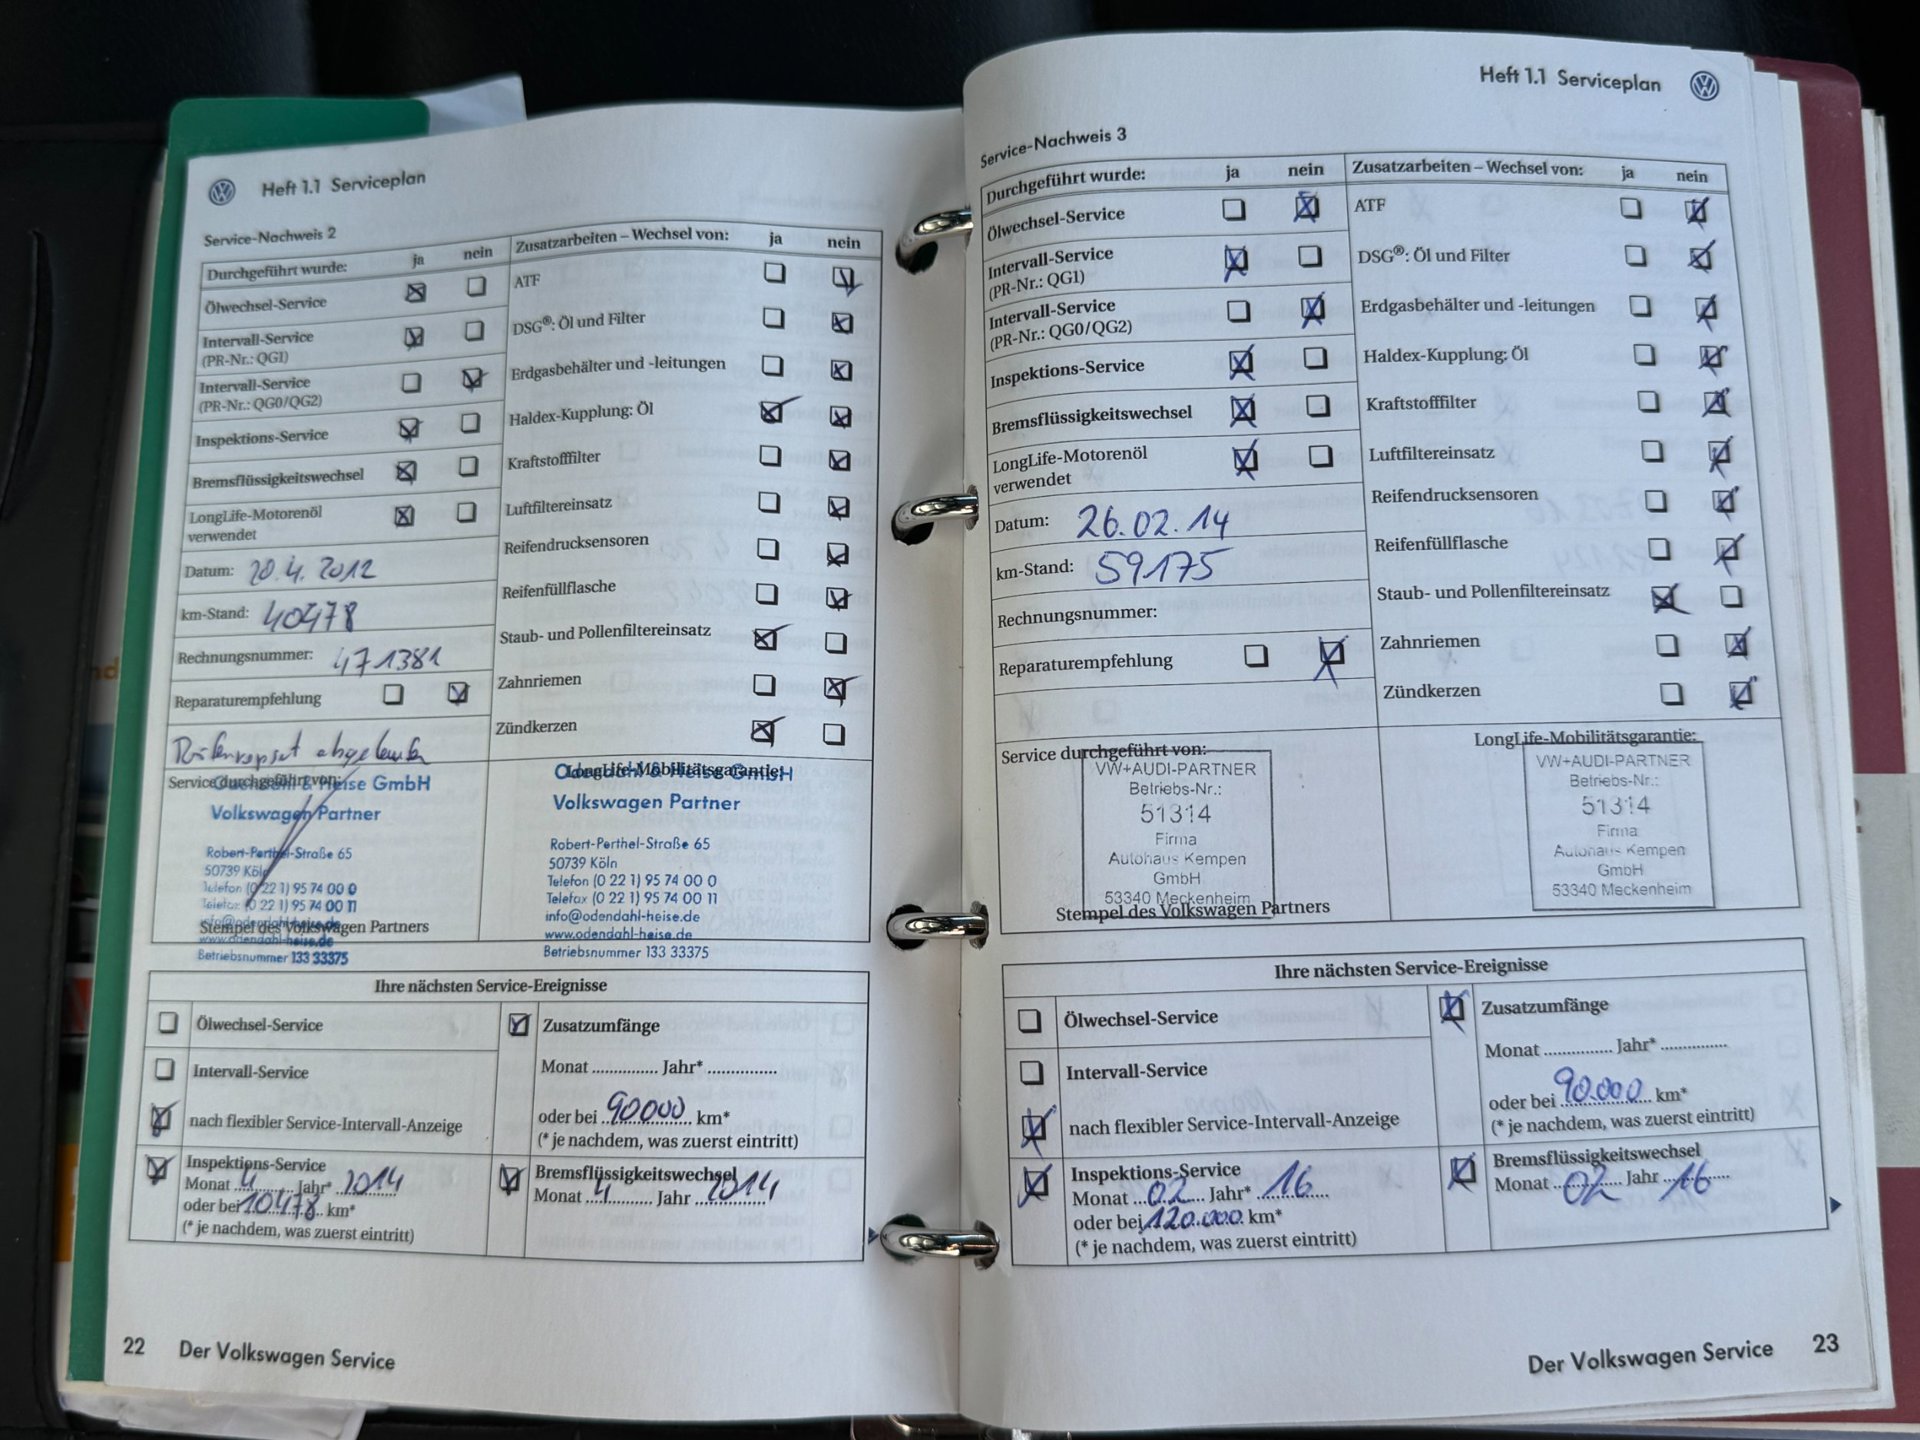 Heft 1.1 Serviceplan
Service-Nachweis 2
Durchgeführt wurde: ja nein
Ölwechsel-Service
Intervall-Service
(PR-Nr.: QG1)
Intervall-Service
(PR-Nr.: QG0/QG2)
Inspektions-Service
Bremsflüssigkeitswechsel
LongLife-Motorenöl
verwendet
Datum: 20.4.2012
km-Stand: 40478
Rechnungsnummer: 471381
Reparaturempfehlung
Zusatzarbeiten – Wechsel von: ja nein
ATF
DSG®: Öl und Filter
Erdgasbehälter und -leitungen
Haldex-Kupplung: Öl
Kraftstofffilter
Luftfiltereinsatz
Reifendrucksensoren
Reifenfüllflasche
Staub- und Pollenfiltereinsatz
Zahnriemen
Zündkerzen
Service durchgeführt von:
Odendahl & Heise GmbH
Volkswagen Partner
Robert-Perthel-Straße 65
50739 Köln
Telefon (0 22 1) 95 74 00 0
Telefax (0 22 1) 95 74 00 11
info@odendahl-heise.de
www.odendahl-heise.de
Betriebsnummer 133 33375
Stempel des Volkswagen Partners
LongLife-Mobilitätsgarantie:
Odendahl & Heise GmbH
Volkswagen Partner
Robert-Perthel-Straße 65
50739 Köln
Telefon (0 22 1) 95 74 00 0
Telefax (0 22 1) 95 74 00 11
info@odendahl-heise.de
www.odendahl-heise.de
Betriebsnummer 133 33375
Ihre nächsten Service-Ereignisse
Ölwechsel-Service
Intervall-Service
nach flexibler Service-Intervall-Anzeige
Inspektions-Service
Monat 4 Jahr* 2014
oder bei 10478 km*
(* je nachdem, was zuerst eintritt)
Zusatzumfänge
Monat .............. Jahr* ...............
oder bei 90000 km*
(* je nachdem, was zuerst eintritt)
Bremsflüssigkeitswechsel
Monat 4 Jahr 2014
22 Der Volkswagen Service
Heft 1.1 Serviceplan
Service-Nachweis 3
Durchgeführt wurde: ja nein
Ölwechsel-Service
Intervall-Service
(PR-Nr.: QG1)
Intervall-Service
(PR-Nr.: QG0/QG2)
Inspektions-Service
Bremsflüssigkeitswechsel
LongLife-Motorenöl
verwendet
Datum: 26.02.14
km-Stand: 59175
Rechnungsnummer:
Reparaturempfehlung
Zusatzarbeiten – Wechsel von: ja nein
ATF
DSG®: Öl und Filter
Erdgasbehälter und -leitungen
Haldex-Kupplung: Öl
Kraftstofffilter
Luftfiltereinsatz
Reifendrucksensoren
Reifenfüllflasche
Staub- und Pollenfiltereinsatz
Zahnriemen
Zündkerzen
Service durchgeführt von:
VW+AUDI-PARTNER
Betriebs-Nr.:
51314
Firma
Autohaus Kempen
GmbH
53340 Meckenheim
Stempel des Volkswagen Partners
LongLife-Mobilitätsgarantie:
VW+AUDI-PARTNER
Betriebs-Nr.:
51314
Firma
Autohaus Kempen
GmbH
53340 Meckenheim
Ihre nächsten Service-Ereignisse
Ölwechsel-Service
Intervall-Service
nach flexibler Service-Intervall-Anzeige
Inspektions-Service
Monat 02 Jahr* 16
oder bei 120.000 km*
(* je nachdem, was zuerst eintritt)
Zusatzumfänge
Monat .............. Jahr* ..............
oder bei 90.000 km*
(* je nachdem, was zuerst eintritt)
Bremsflüssigkeitswechsel
Monat 02 Jahr 16
Der Volkswagen Service 23